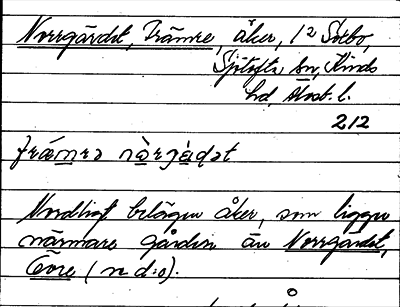 Norrgärdet, Främre, åker, 1² Sorbo,
sn, Kinds
hd, Älvsb. l.
212
fræ̀mrə nòrjæ̀ḍət
Nordligt belägen åker, som ligger
närmare gården än Norrgärdet,
Övre (n d:o).